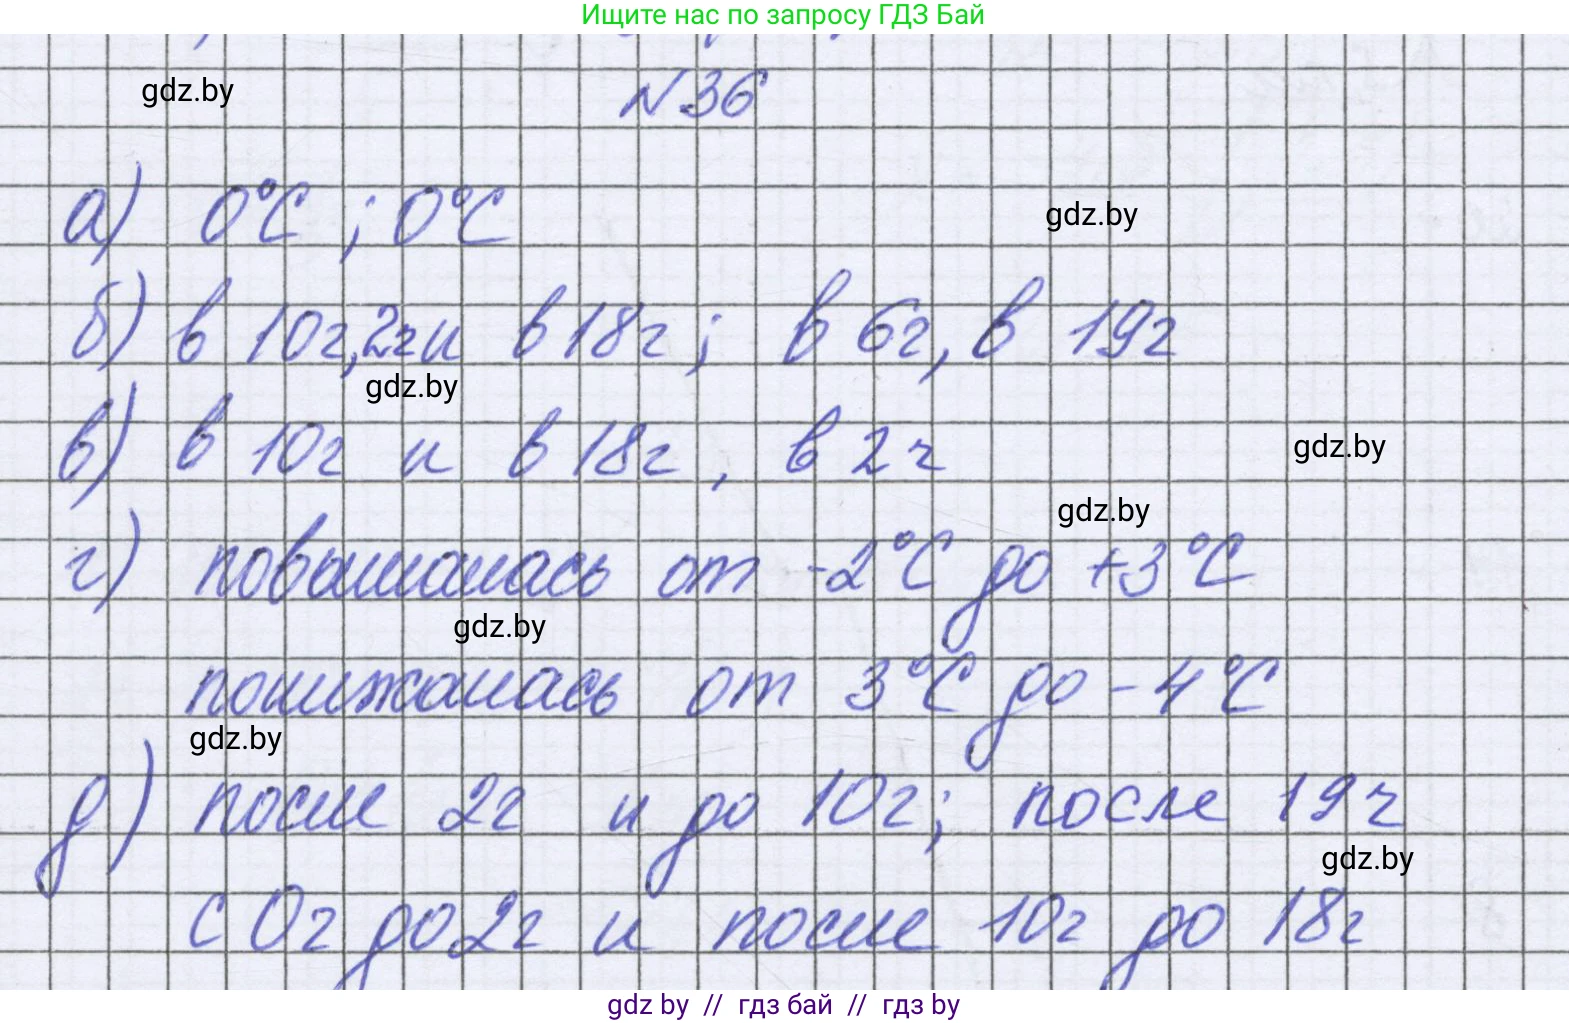 Ищите нас по запросу ГДЗ Бай
gdz.by
№36
а) 0°С ; 0°С
gdz.by
б) в 10г, 2г и в 18г ; в 6г, в 19г
gdz.by
в) в 10г и в 18г , в 2ч
gdz.by
gdz.by
г) повышалась от -2°С до +3°С
gdz.by
понижалась от 3°С до -4°С
gdz.by
д) после 2г и до 10г; после 19ч
gdz.by
с 0г до 2г и после 10г до 18г
gdz by // гдз бай // гдз by